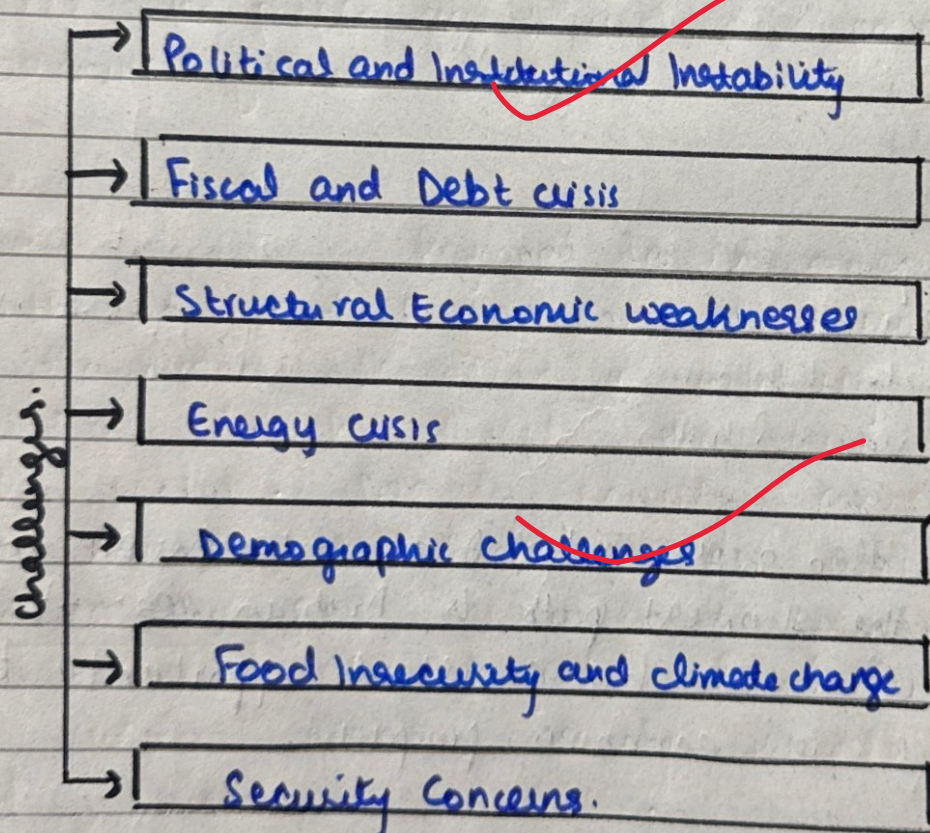 Political and Institutional Instability
Fiscal and Debt crisis
Structural Economic weaknesses
Energy crisis
Demographic challenges
Food Insecurity and climate change
Security Concerns.
Challenges.